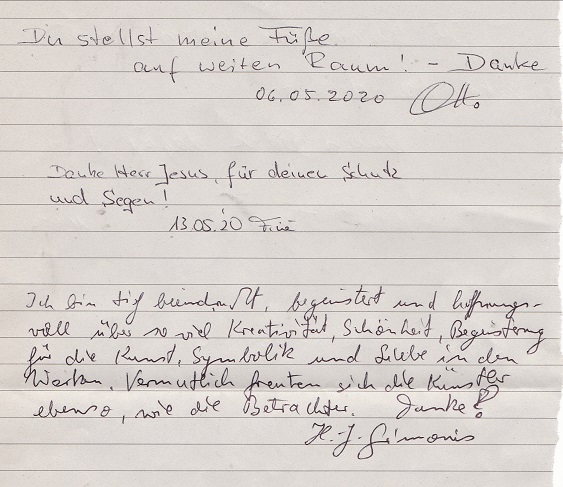 Du stellst meine Füße
auf weiten Raum! - Danke
06.05.2020 Ott.
Danke Herr Jesus, für deinen Schutz
und Segen!
13.05.20
Ich bin tief beeindruckt, begeistert und hoffnungs-
voll über so viel Kreativität, Schönheit, Begeisterung
für die Kunst, Symbolik und Liebe in den
Werken. Vermutlich freuten sich die Künstler
ebenso, wie die Betrachter. Danke!
H.-J. Simonis